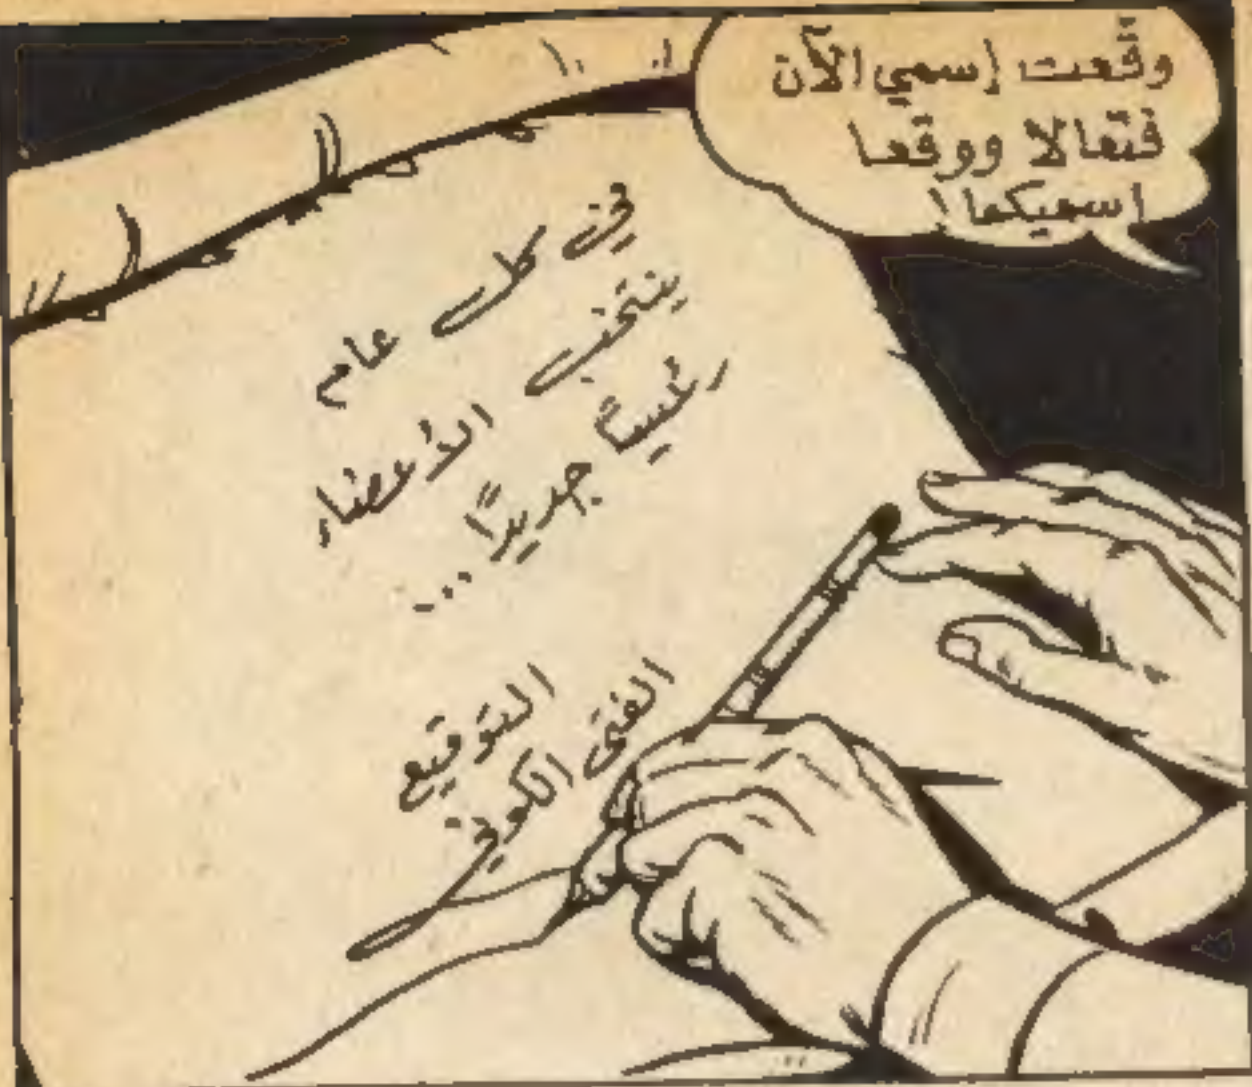 وقّعت إسمي الآن
فتعالا ووقعا
اسميكما!
في كل عام
ينتخب الأعضاء
رئيساً جديداً ...
التوقيع
الفتى الكوني